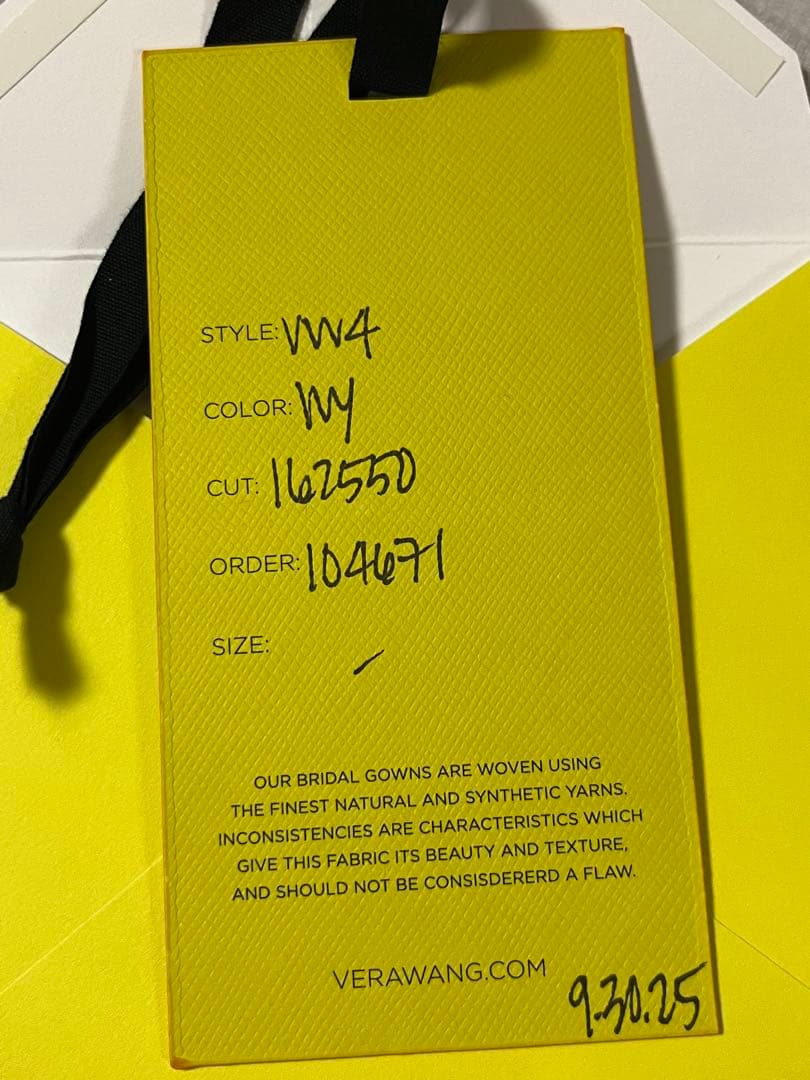 STYLE: VW4
COLOR: IVY
CUT: 162550
ORDER: 104671
SIZE: –
OUR BRIDAL GOWNS ARE WOVEN USING
THE FINEST NATURAL AND SYNTHETIC YARNS.
INCONSISTENCIES ARE CHARACTERISTICS WHICH
GIVE THIS FABRIC ITS BEAUTY AND TEXTURE,
AND SHOULD NOT BE CONSISDERERD A FLAW.
VERAWANG.COM
9.30.25